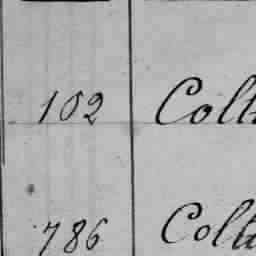 102 Colt
786 Colt